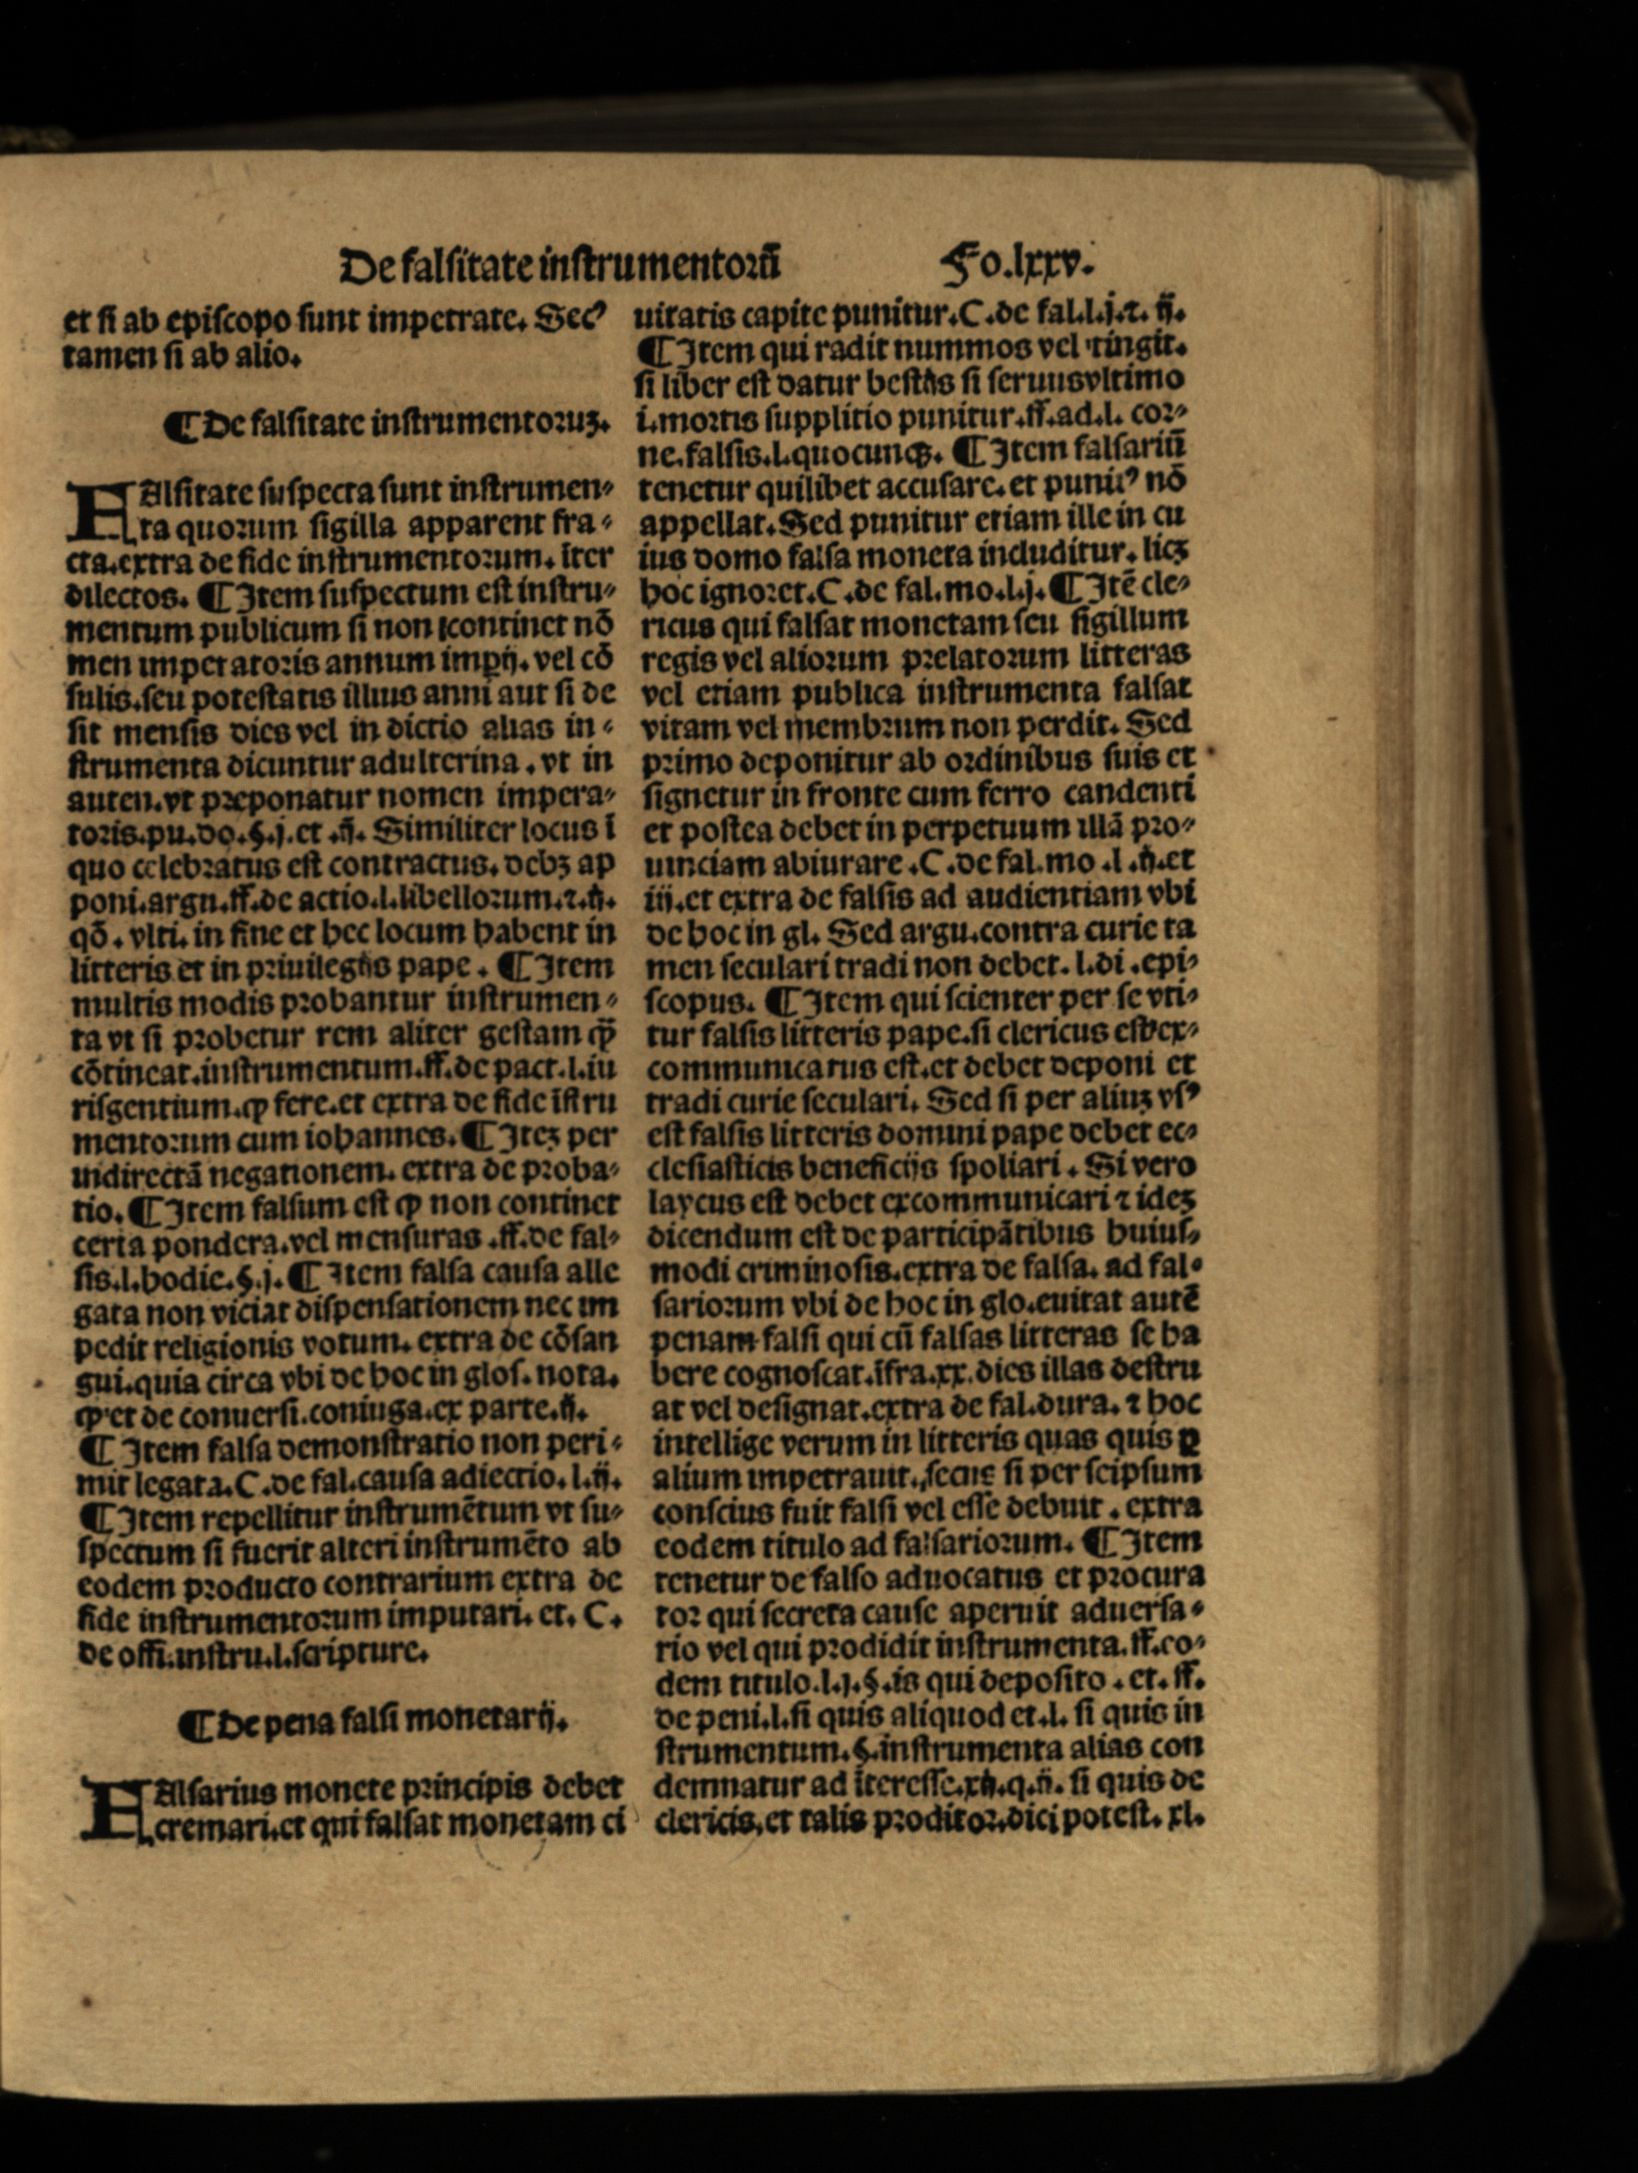 De falsitate instrumentorū Fo.lxxv.
et si ab episcopo sunt impetrate. Secꝰ
tamen si ab alio.
¶ De falsitate instrumentoruꝫ.
FAlsitate suspecta sunt instrumen-
ta quorum sigilla apparent fra-
cta.extra de fide instrumentorum. īter
dilectos. ¶ Item suspectum est instru-
mentum publicum si non continet nō
men imperatoris annum imꝑij. vel cō
sulis.seu potestatis illius anni aut si de
sit mensis dies vel in dictio alias in-
strumenta dicuntur adulterina . vt in
auten.vt preponatur nomen impera-
toris.pu.do.§.j.et .ij. Similiter locus ī
quo celebratus est contractus. debꝫ ap
poni.argu.ff.de actio.l.libellorum.⁊.ij.
qō. vlti. in fine et hec locum habent in
litteris et in priuilegijs pape . ¶ Item
multis modis probantur instrumen-
ta vt si probetur rem aliter gestam ꝙ̄
cōtineat.instrumentum.ff.de pact.l.iu
risgentium.ꝙ fere.et extra de fide īstru
mentorum cum iohannes. ¶ Iteꝫ per
indirectā negationem. extra de proba-
tio. ¶ Item falsum est ꝙ non continet
certa pondera.vel mensuras .ff.de fal-
sis.l.hodie.§.j. ¶ Item falsa causa alle
gata non viciat dispensationem nec im
pedit religionis votum. extra de cōsan
gui.quia circa vbi de hoc in glos. nota.
ꝙ et de conuersi.coniuga.ex parte.ij.
¶ Item falsa demonstratio non peri-
mit legata. C.de fal.causa adiectio. l.ij.
¶ Item repellitur instrumētum vt su-
spectum si fuerit alteri instrumēto ab
eodem producto contrarium extra de
fide instrumentorum imputari. et. C.
de offi.instru.l.scripture.
¶ De pena falsi monetarij.
FAlsarius monete principis debet
cremari.et qui falsat monetam ci
uitatis capite punitur.C.de fal.l.j.⁊. ij.
¶ Item qui radit nummos vel tingit.
si liber est datur bestijs si seruusvltimo
i.mortis supplitio punitur.ff.ad.l. cor-
ne.falsis.l.quocunqꝫ. ¶ Item falsariū
tenetur quilibet accusare.et punitꝰ nō
appellat. Sed punitur etiam ille in cu
ius domo falsa moneta includitur. licꝫ
hoc ignoret.C.de fal.mo.l.j. ¶ Itē cle-
ricus qui falsat monetam seu sigillum
regis vel aliorum prelatorum litteras
vel etiam publica instrumenta falsat
vitam vel membrum non perdit. Sed
primo deponitur ab ordinibus suis et
signetur in fronte cum ferro candenti
et postea debet in perpetuum illā pro-
uinciam abiurare .C.de fal.mo .l .ij.et
iij.et extra de falsis ad audientiam vbi
de hoc in gl. Sed argu.contra curie ta
men seculari tradi non debet. l.di .epi-
scopus. ¶ Item qui scienter per se vti-
tur falsis litteris pape.si clericus est ex-
communicatus est.et debet deponi et
tradi curie seculari. Sed si per aliuꝫ vsꝰ
est falsis litteris domini pape debet ec-
clesiasticis beneficijs spoliari . Si vero
laycus est debet excommunicari ⁊ ideꝫ
dicendum est de participātibus huius-
modi criminosis.extra de falsa. ad fal-
sariorum vbi de hoc in glo.euitat autē
penam falsi qui cū falsas litteras se ha
bere cognoscat.īfra.xx.dies illas destru
at vel designat.extra de fal.dura. ⁊ hoc
intellige verum in litteris quas quis ꝑ
alium impetrauit. secus si per seipsum
conscius fuit falsi vel esse debuit . extra
eodem titulo ad falsariorum. ¶ Item
tenetur de falso aduocatus et procura
tor qui secreta cause aperuit aduersa-
rio vel qui prodidit instrumenta.ff.eo-
dem titulo.l.j.§.is qui deposito . et. ff.
de peni.l.si quis aliquod et.l. si quis in
strumentum.§.instrumenta alias con
demnatur ad īteresse.xij.q.ij. si quis de
clericis.et talis proditor.dici potest. xl.